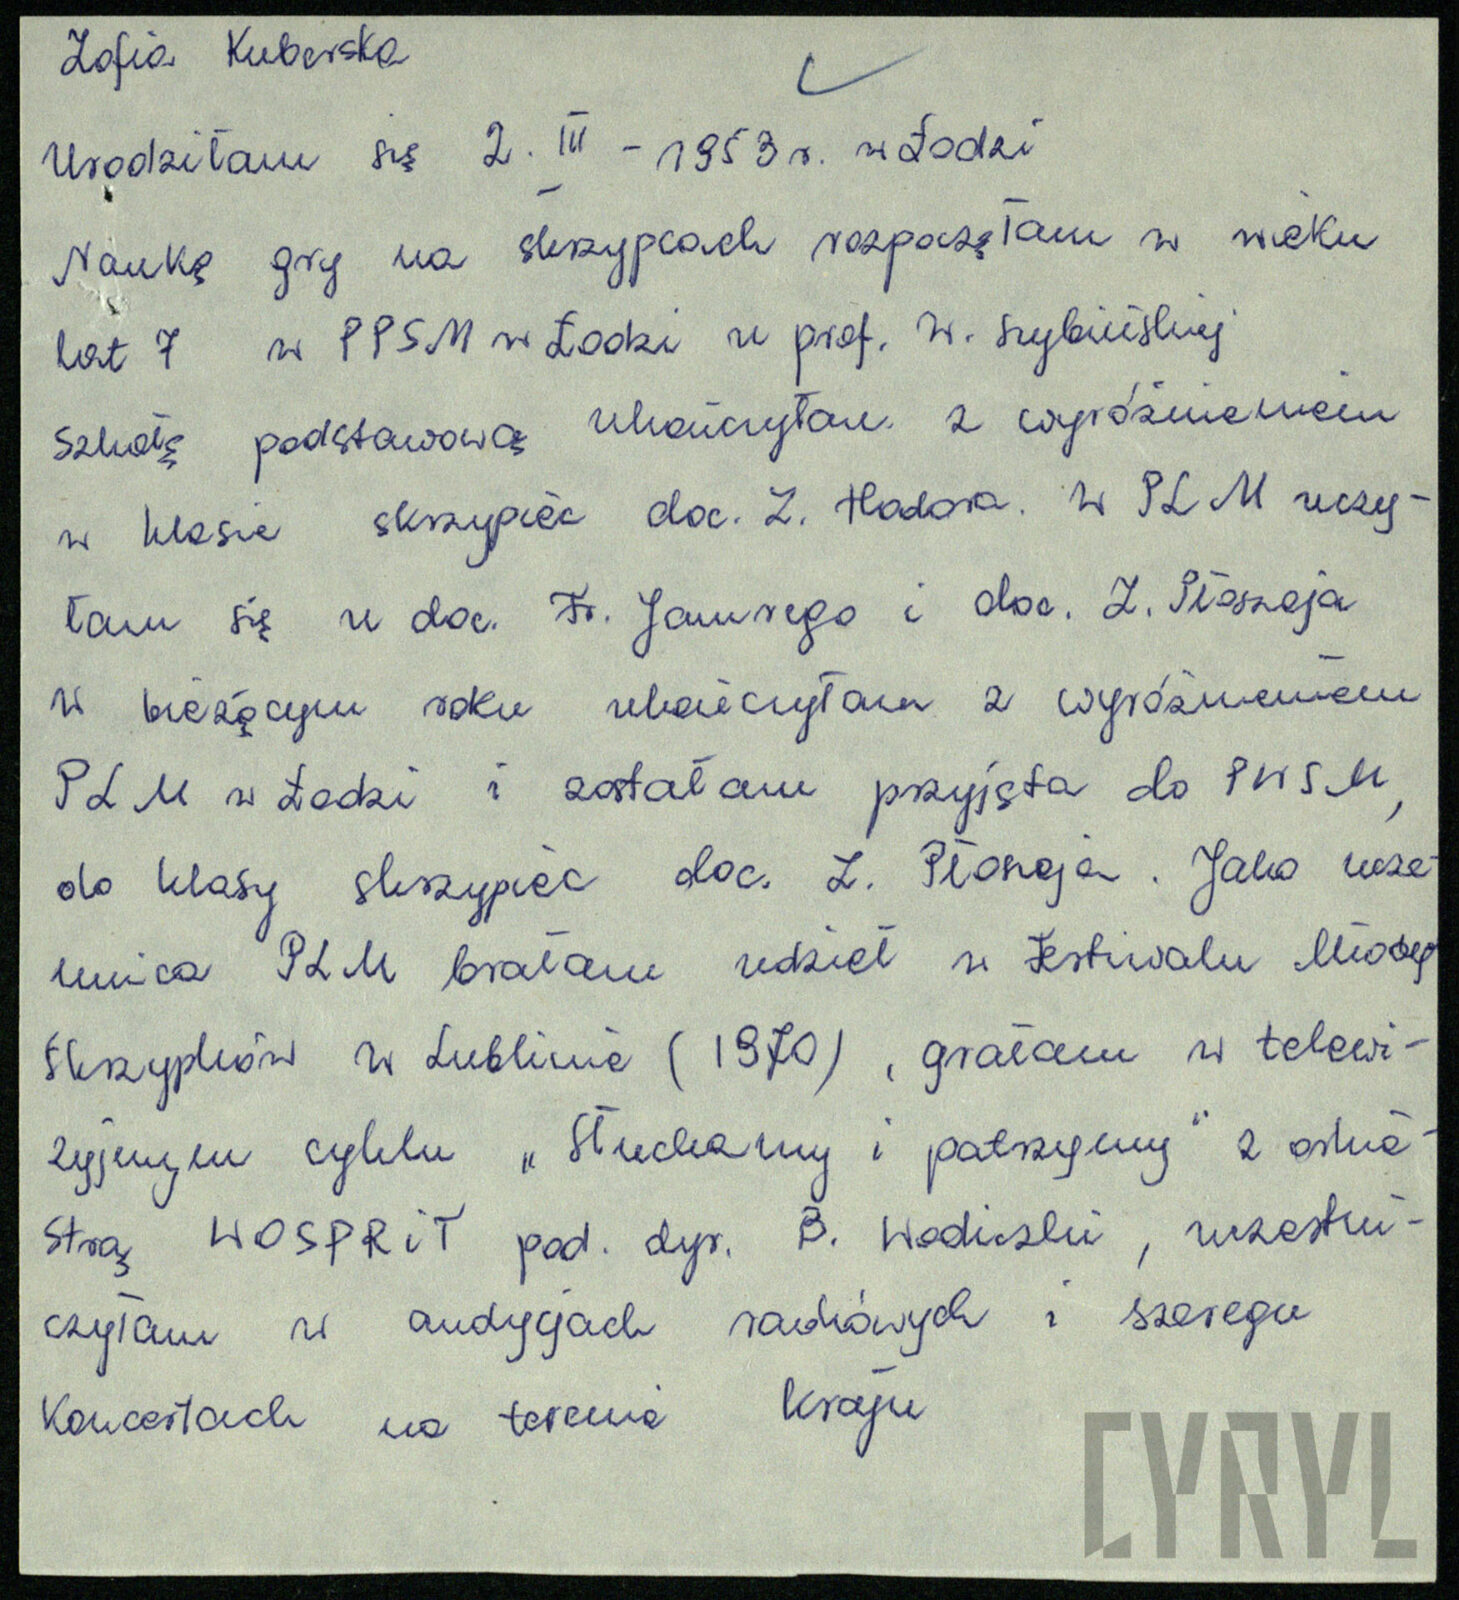 Zofia Kuberska
Urodziłam się 2. III - 1953 r. w Łodzi
Naukę gry na skrzypcach rozpoczęłam w wieku
lat 7 w PPSM w Łodzi u prof. W. Szybińskiej
Szkołę podstawową ukończyłam z wyróżnieniem
w klasie skrzypiec doc. Z. Hodora. W PLM uczy-
łam się u doc. Fr. Jamrego i doc. Z. Płoszaja
W bieżącym roku ukończyłam z wyróżnieniem
PLM w Łodzi i zostałam przyjęta do PWSM,
do klasy skrzypiec doc. Z. Płoszaja. Jako ucze-
nnica PLM brałam udział w Festiwalu Młodych
Skrzypków w Lublinie (1970), grałam w telewi-
zyjnym cyklu „Słuchamy i patrzymy" z orkie-
strą WOSPRiT pod. dyr. B. Wodiczki, uczestni-
czyłam w audycjach radiowych i szeregu
Koncertach na terenie kraju
CYRYL